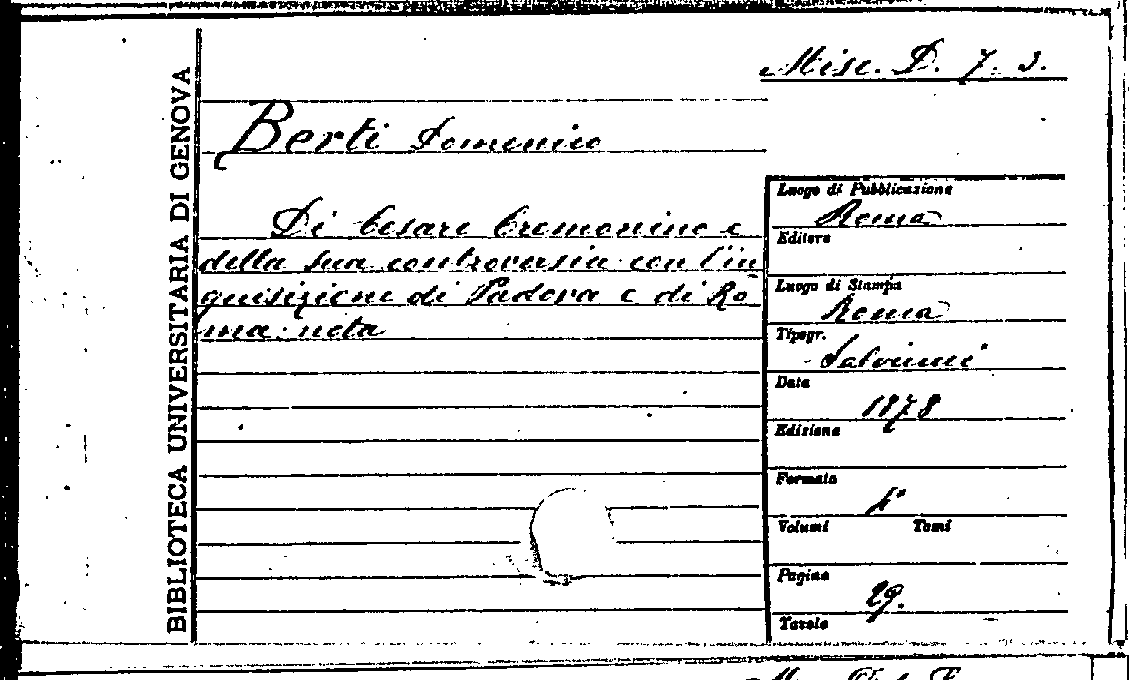 BIBLIOTECA UNIVERSITARIA DI GENOVA
Misc. D. 7. 3.
Berti Domenico
Di Cesare Cremonino e
della sua controversia con l'in
quisizione di Padova e di Ro
ma: nota
Luogo di Pubblicazione
Roma
Editore
Luogo di Stampa
Roma
Tipogr.
Salviucci
Data
1878
Edizione
Formato
4°
Volumi Tomi
Pagine
29.
Tavole